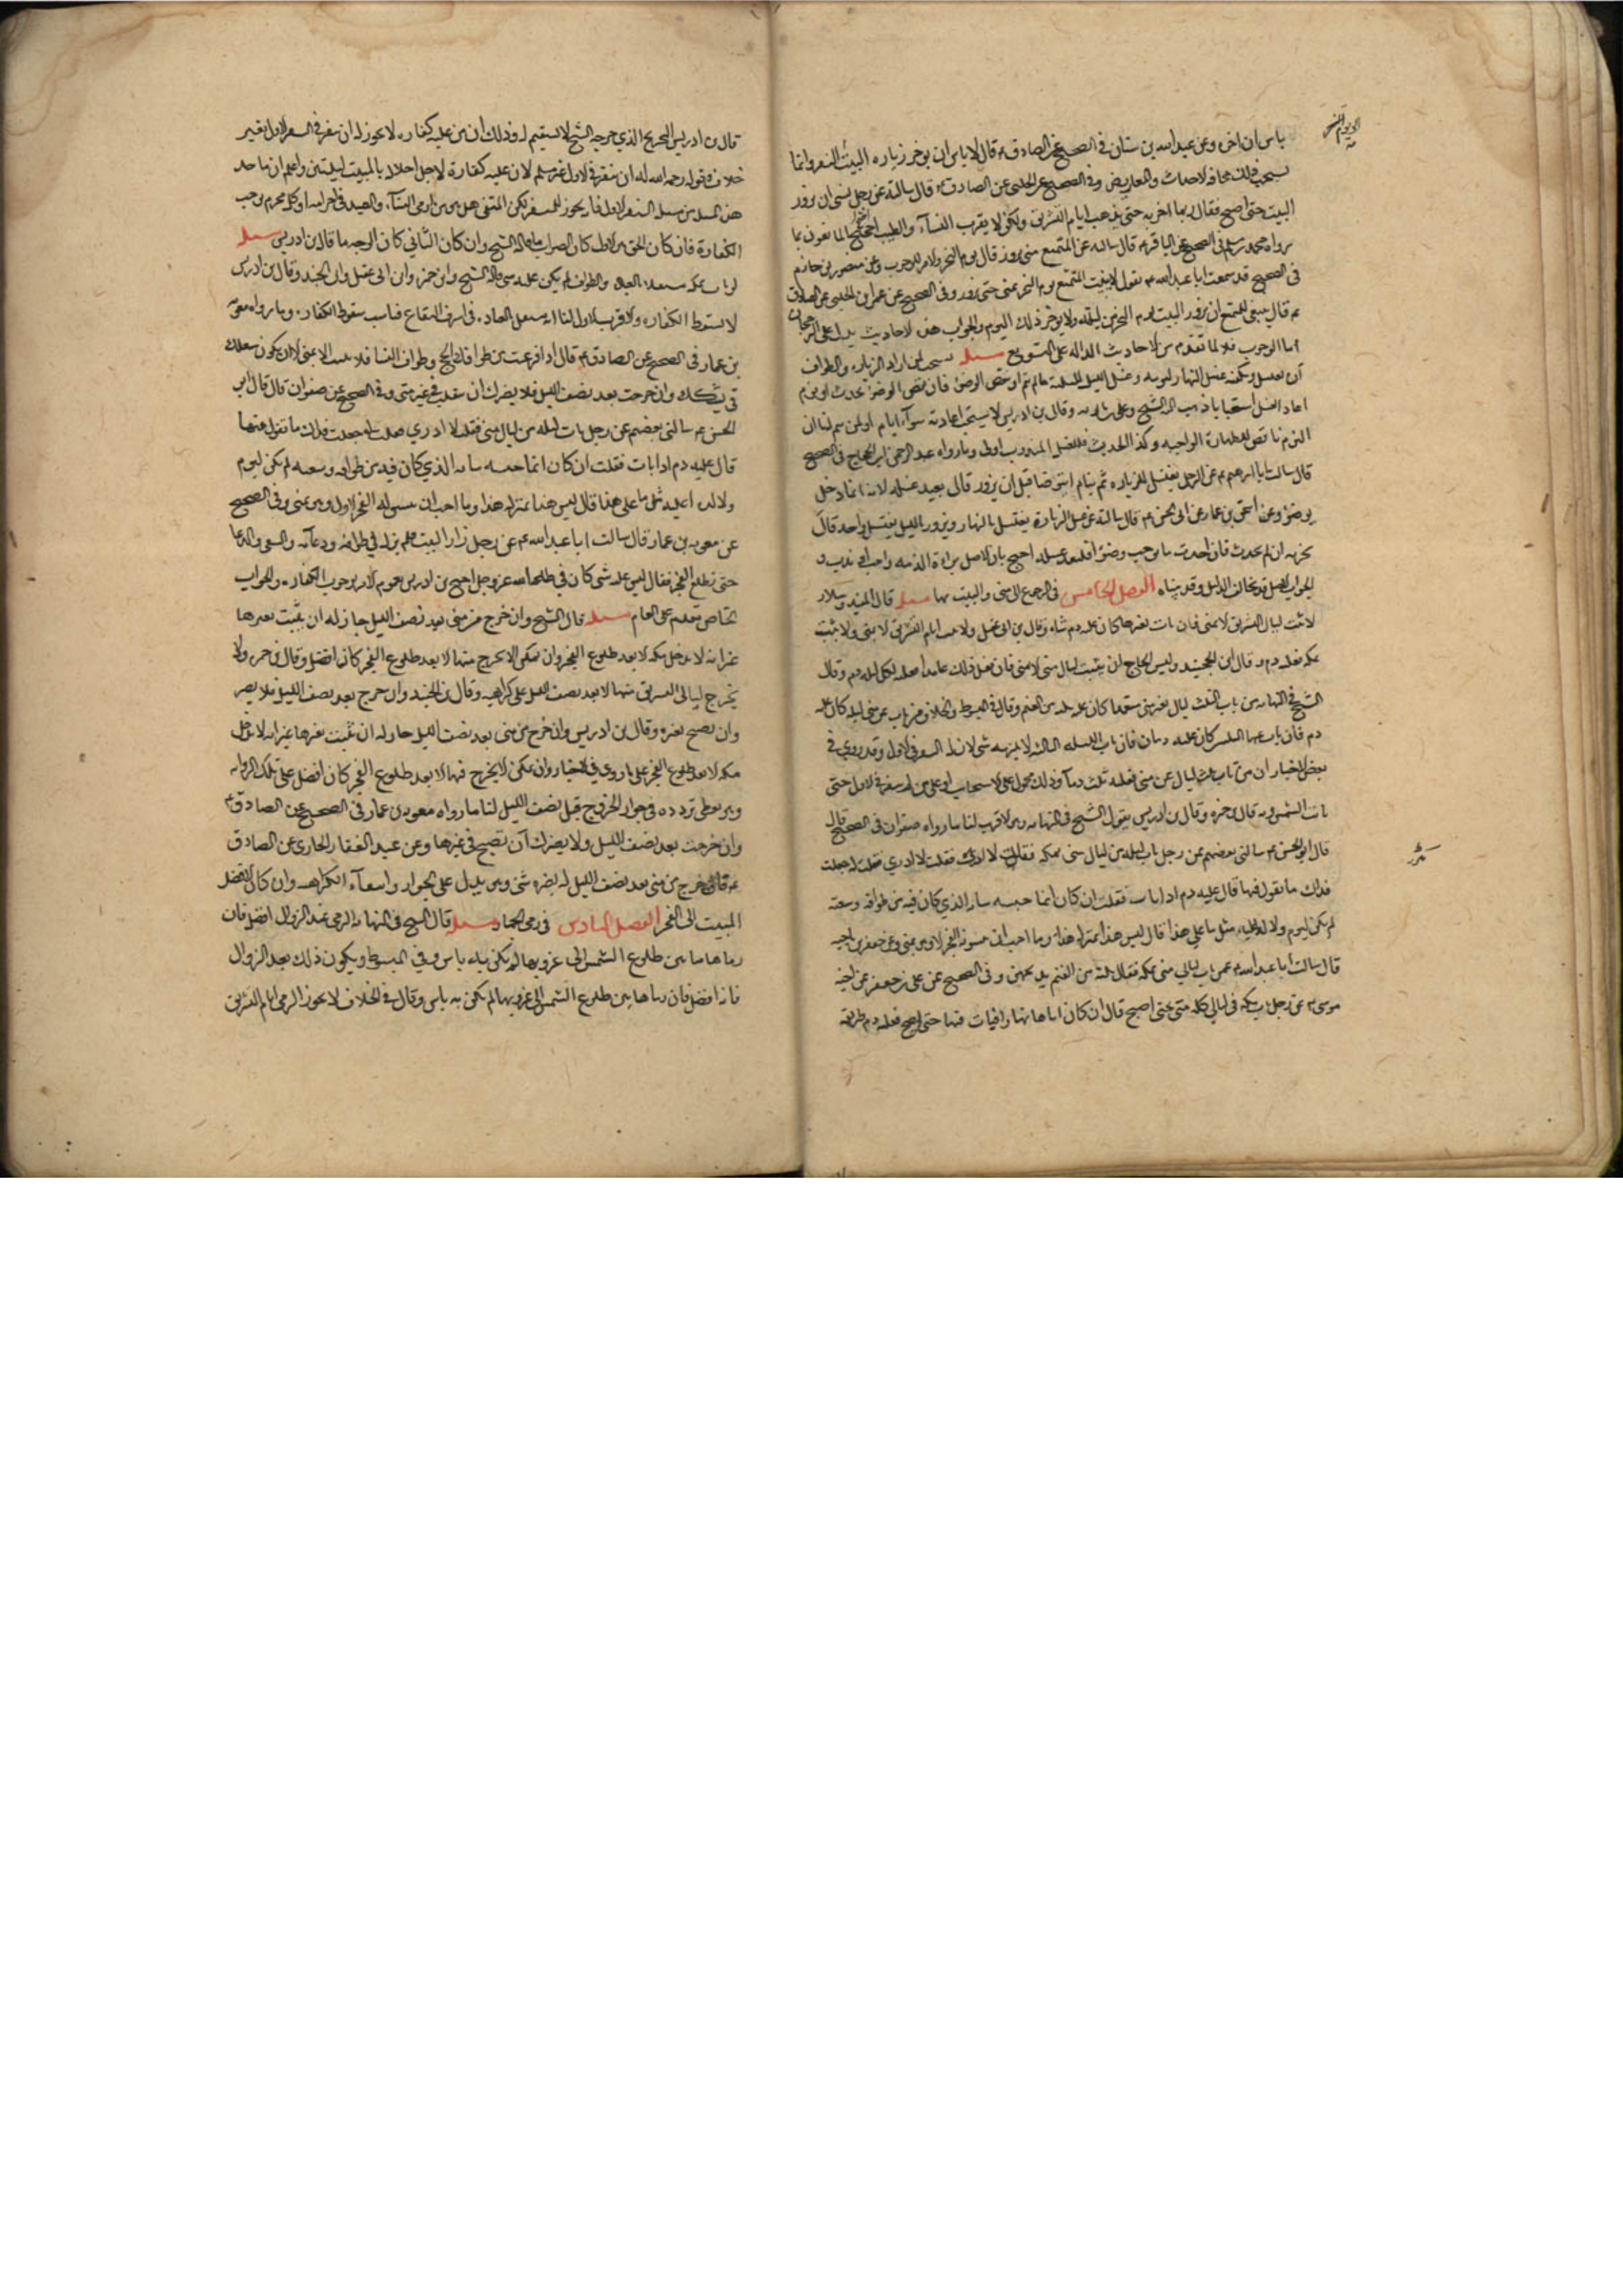 الى يوم النفر
باس ان اخر وعن عبدالله بن سنان فى الصحيح عن الصادق ع قال لا باس ان يوخر زياره البيت الى النفر وانما
يستحب ذلك مخافه الاحداث والمعاريض وفى الصحيح عن الحلبى عن الصادق ع قال سالته عن رجل نسى ان يزور
البيت حتى اصبح فقال ربما اخرته حتى يذهب ايام التشريق ولكن لا يقرب النساء والطيب احتج المانعون بما
رواه محمد بن مسلم فى الصحيح عن الباقر ع قال سالته عن المتمتع متى يزور قال يوم النحر والامر للوجوب وعن منصور بن حازم
فى الصحيح قال سمعت ابا عبدالله ع يقول لا يبيت المتمتع يوم النحر بمنى حتى يزور وفى الصحيح عن عمران الحلبى عن الصادق
ع قال ينبغى للمتمتع ان يزور البيت يوم النحر او من ليلته ولا يوخر ذلك اليوم والجواب هذه الاحاديث يدل على الرجحان
اما الوجوب فلا لما تقدم من الاحاديث الداله على التسويغ مسله يستحب لمن اراد الزياره والطواف
ان يغتسل ويكفيه غسل النهار ليومه وغسل الليل لليلته ما لم ينم او ينقض الوضوء فان نقض الوضوء بحدث او نوم
اعاد الغسل استحبابا ذهب اليه الشيخ وعلى بن بابويه وقال بن ادريس لا يستحب اعادته سواء نام او لم ينم لنا ان
النوم ناقض للطهارة الواجبه وكذا الحدث فللغسل المندوب اولى وما رواه عبد الرحمن ابن الحجاج فى الصحيح
قال سالت ابا ابرهيم ع عن الرجل يغتسل للزياره ثم ينام ايتوضا قبل ان يزور قال يعيد غسله لانه انما دخل
بوضوء وعن اسحق بن عمار عن ابى الحسن ع قال سالته عن غسل الزيارة يغتسل بالنهار ويزور بالليل بغسل واحد قال
يجزيه ان لم يحدث فان احدث ما يوجب وضوءا فليعد غسله احتج بان الاصل براءة الذمه واجبا او ندبا و
الجواب الاصل قد يخالف لدليل وقد بيناه الفصل الخامس فى الرجوع الى منى والمبيت بها مسله قال المفيد وسلار
لا يبت ليالى التشريق الا بمنى فان بات بغيرها كان عليه دم شاه وقال بن ابى عقيل ولا يبت ايام التشريق الا بمنى ولا يبيت
بمكه فعليه دم وقال ابن الجنيد وليس للحاج ان يبيت ليالى منى الا بمنى فان فعل ذلك عامدا فعليه لكل ليله دم وقال
الشيخ فى النهايه من بات الثلث ليالى بغير منى متعمدا كان عليه ثلثه من الغنم وقال فى المبسوط والخلاف من بات عن منى ليله كان عليه
دم فان بات عنها ليلتين كان عليه دمان فان بات الليله الثالثه لا يلزمه شى لان له النفر فى الاول وقد روى فى
بعض الاخبار ان من بات ثلث ليال عن منى فعليه ثلث دماء وذلك محمول على الاستحباب او على من لم ينفر فى الاول حتى
غابت الشمس وبه قال بن حمزه وقال بن ادريس بقول الشيخ فى النهايه وهو الاقرب لنا ما رواه صفوان فى الصحيح قال
قال ابو الحسن ع سالنى بعضهم عن رجل بات ليله من ليالى منى بمكه فقلت لا ادرى فقلت له جعلت
فداك ما تقول فيها قال عليه دم اذا بات فقلت ان كان انما حبسه شانه الذى كان فيه من طوافه وسعيه
لم يكن لنوم ولا لذة اعليه مثل ما على هذا قال ليس هذا بمنزله هذا وما احب ان ينشق له الفجر الا وهو بمنى وعن جعفر بن ناجيه
قال سالت ابا عبدالله ع عمن بات ليالى منى بمكه فقال ثلثه من الغنم يذبحهن وفى الصحيح عن على بن جعفر عن اخيه
موسى ع عن رجل بات بمكه فى ليالى منى حتى اصبح قال ان كان اتاها نهارا فبات فيها حتى اصبح فعليه دم يهريقه
قال بن ادريس التخريج الذى خرجه الشيخ لا يستقيم له وذلك ان من عليه كفاره لا يجوز له ان ينفر فى النفر الاول بغير
خلاف وقوله رحمه الله له ان ينفر فى الاول غير مسلم لان عليه كفارة لاجل اخلاله بالمبيت ليلتين واعلم ان ماخذ
هذه المسله من مسله النفر الاول فانه يجوز للمتقى لكن المتقى هل هو من اتقى النساء والصيد فى احرامه او كل محرم يوجب
الكفارة فان كان الحق هو الاول كان الصواب ما قاله الشيخ وان كان الثانى كان الوجه ما قاله بن ادريس مسله
لو بات بمكه مشتغلا بالعباده والطواف لم يكن عليه شى قاله الشيخ وابن حمزه وابن ابى عقيل وابن الجنيد وقال بن ادريس
لا تسقط الكفاره والاقرب الاول لنا انه مشتغل بالعباده فى اشرف البقاع فناسب سقوط الكفاره وما رواه معويه
بن عمار فى الصحيح عن الصادق ع قال اذا فرغت من طوافك للحج وطواف النسا فلا تبت الا بمنى الا ان يكون شغلك
فى نسكك وان خرجت بعد نصف الليل فلا يضرك ان تبيت فى غير منى وفى الصحيح عن صفوان قال قال ابو
الحسن ع سالنى بعضهم عن رجل بات ليله من ليالى منى فقلت لا ادرى فقلت له جعلت فداك ما تقول فيها
قال عليه دم اذا بات فقلت ان كان انما حبسه شانه الذى كان فيه من طوافه وسعيه لم يكن لنوم
ولا لذه اعليه مثل ما على هذا قال ليس هذا بمنزله هذا وما احب ان ينشق له الفجر الا وهو بمنى وفى الصحيح
عن معويه بن عمار قال سالت ابا عبدالله ع عن رجل زار البيت فلم يزل فى طوافه ودعائه والسعى والدعا
حتى يطلع الفجر فقال ليس عليه شى كان فى طاعة الله عز وجل احتج بن ادريس بعموم الامر بوجوب الكفاره والجواب
الخاص مقدم على العام مسله قال الشيخ وان خرج من منى بعد نصف الليل جاز له ان يبيت بغيرها
غير انه لا يدخل مكه الا بعد طلوع الفجر وان تمكن الا يخرج منها الا بعد طلوع الفجر كان افضل وقال بن حمزه ولا
يخرج ليالى التشريق منها الا بعد نصف الليل على كراهيه وقال بن الجنيد وان خرج بعد نصف الليل فلا يضر
وان يصبح بغيره وقال بن ادريس وان خرج من منى بعد نصف الليل جاز له ان يبيت بغيرها غير انه لا يدخل
مكه الا بعد طلوع الفجر على ما روى فى الاخبار وان تمكن لا يخرج منها الا بعد طلوع الفجر كان افضل على تلك الروايه
وهو يعطى تردده فى جواز الخروج قبل نصف الليل لنا ما رواه معويه بن عمار فى الصحيح عن الصادق ع
وان خرجت بعد نصف الليل ولا يضرك ان تصبح فى غيرها وعن عبد الغفار الجازى عن الصادق
ع فان خرج من منى بعد نصف الليل لم يضره شى وهو يدل على الجواز وانتفاء الكراهيه وان كان الافضل
المبيت الى الفجر الفصل السادس فى رمى الجمار مسله قال الشيخ فى النهايه الرمى عند الزوال افضل فان
رماها ما بين طلوع الشمس الى غروبها لم يكن به باس وفى المبسوط ويكون ذلك بعد الزوال
فانه افضل فان رماها بين طلوع الشمس الى غروبها لم يكن به باس وقال فى الخلاف لا يجوز الرمى ايام التشريق